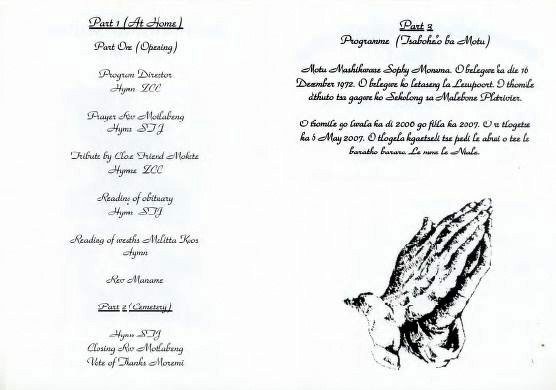 Part 1 (At Home)
Part One (Opening)
Program Director
Hymn ZCC
Prayer Rev Motlabeng
Hymn STJ
Tribute by Close Friend Mokete
Hymn ZCC
Reading of obituary
Hymn STJ
Reading of wreaths Melitta Koos
Hymn
Rev Maname
Part 2 (Cemetery)
Hymn STJ
Closing Rev Motlabeng
Vote of Thanks Moremi
Part 3
Programme ('Tsabohelo ba Motu)
Motu Mashikwane Sophy Monama. O belegwe ka die 16
Dezember 1972. O belegwe ko letaseng la Leeupoort. O thomile
dithuto tsa gagwe ko Sekolong sa Malebone Platrivier.
O thomile go lwala ka di 2006 go fihla ka 2007. O re tlogetse
ka 5 May 2007. O tlogela kgaetsedi tse pedi le abuti o tee le
baratho bararo. Le mme le Ntate.